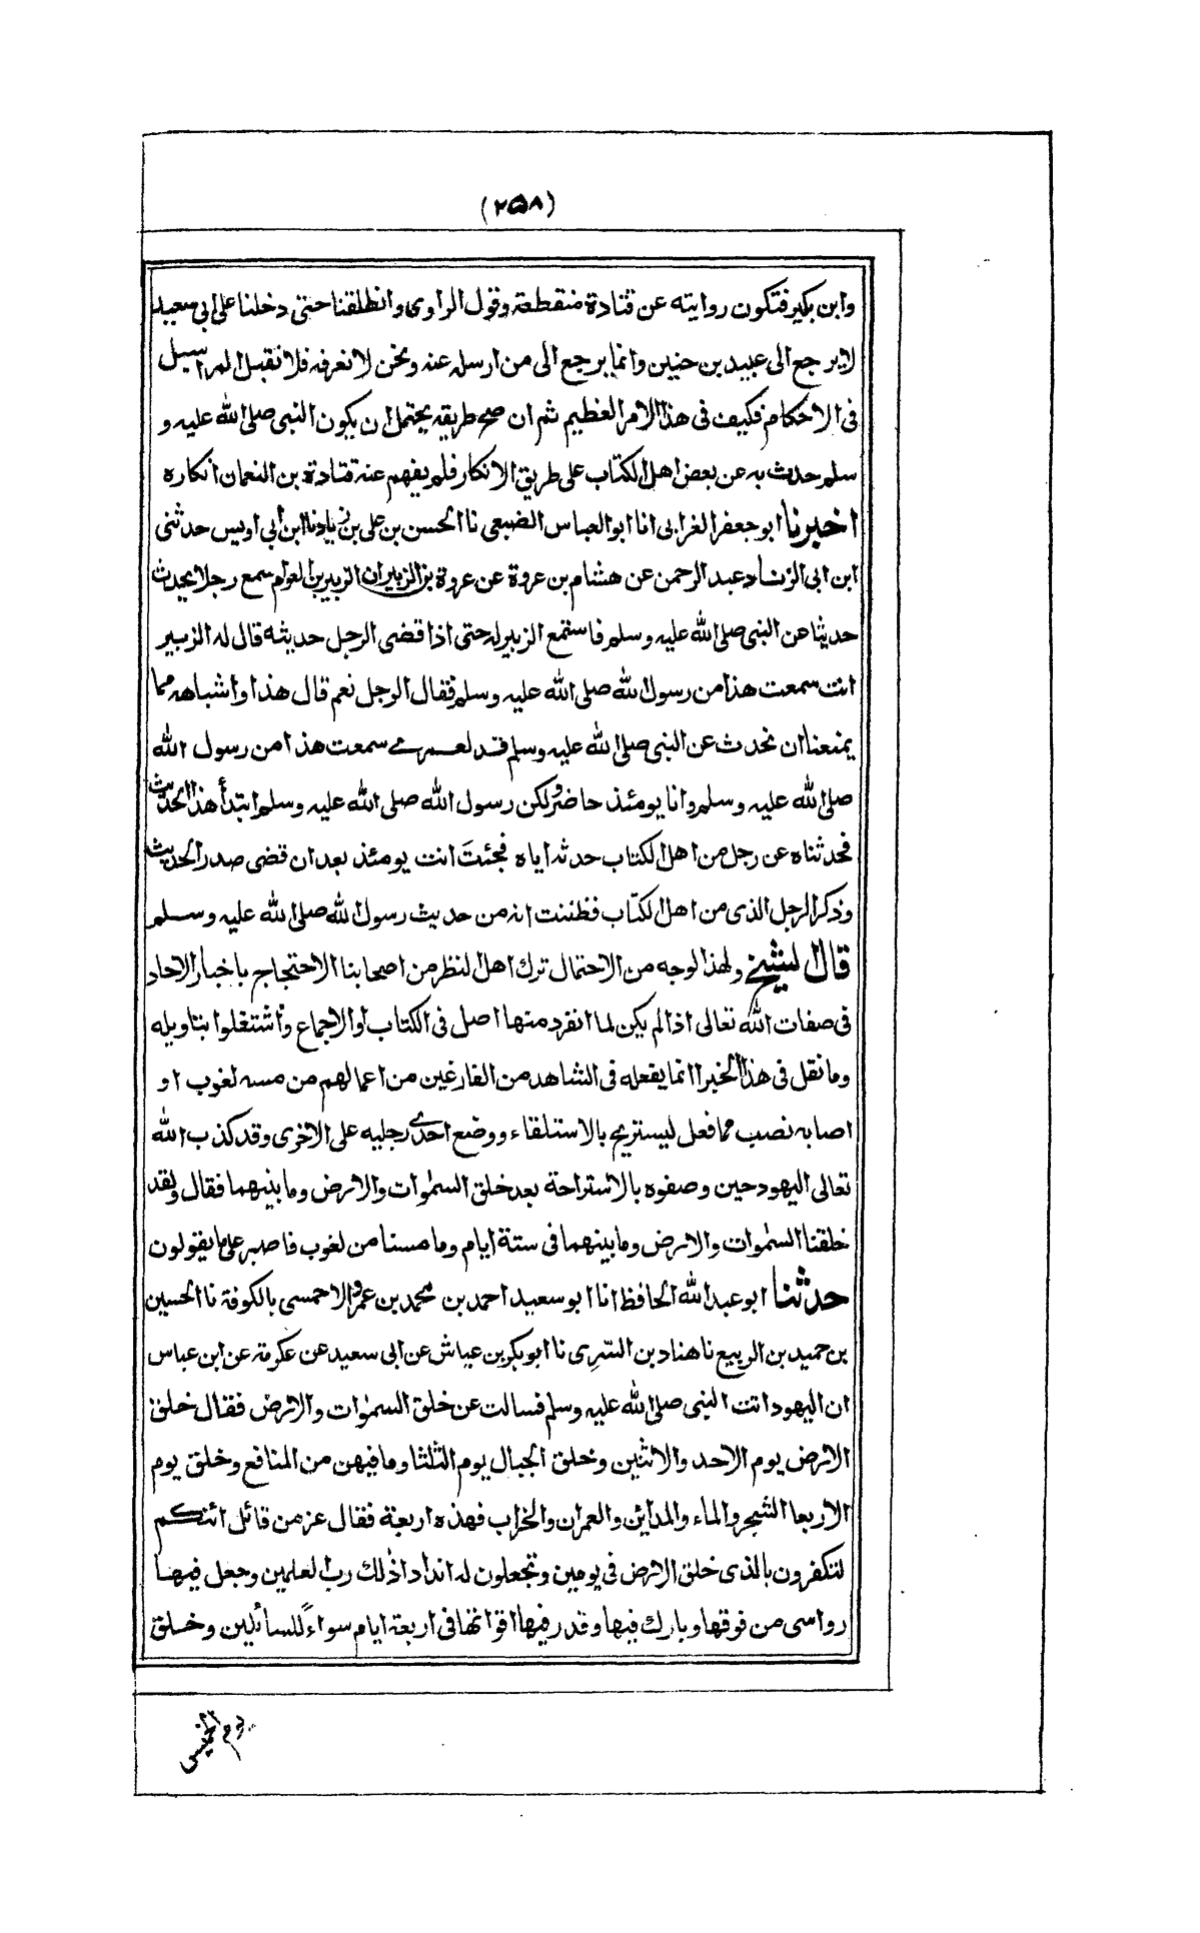 (۲۵۸)
وابن بكير فتكون روايته عن قتادة منقطعة وقول الراوى وانطلقنا حتى دخلنا على ابى سعيد
لا يرجع الى عبيد بن حنين وانما يرجع الى من ارسله عنه ونحن لا نعرفه فلا نقبل المراسيل
فى الاحكام فكيف فى هذا الامر العظيم ثم ان صح طريقه يحتمل ان يكون النبى صلى الله عليه و
سلم حدث به عن بعض اهل الكتاب على طريق الانكار فلم يفهم عنه قتادة بن النعمان انكاره
اخبرنا ابو جعفر الغرابى انا ابو العباس الضبعى نا الحسن بن على بن زياد نا ابن ابى اويس حدثنى
ابن ابى الزناد عبد الرحمن عن هشام بن عروة عن عروة بن الزبير ان الزبير بن العوام سمع رجلا يحدث
حديثا عن النبى صلى الله عليه وسلم فاستمع الزبير له حتى اذا قضى الرجل حديثه قال له الزبير
انت سمعت هذا من رسول الله صلى الله عليه وسلم فقال الرجل نعم قال هذا واشباهه مما
يمنعنا ان نحدث عن النبى صلى الله عليه وسلم قد لعمرى سمعت هذا من رسول الله
صلى الله عليه وسلم وانا يومئذ حاضر ولكن رسول الله صلى الله عليه وسلم ابتدأ هذا الحديث
فحدثناه عن رجل من اهل الكتاب حدثه اياه فجئتَ انت يومئذ بعد ان قضى صدر الحديث
وذكر الرجل الذى من اهل الكتاب فظننت انه من حديث رسول الله صلى الله عليه وسلم
قال الشيخ ولهذا الوجه من الاحتمال ترك اهل النظر من اصحابنا الاحتجاج باخبار الاحاد
فى صفات الله تعالى اذا لم يكن لما انفرد منها اصل فى الكتاب او الاجماع واشتغلوا بتاويله
وما نقل فى هذا الخبر انما يفعله فى الشاهد من الفارغين من اعمالهم من مسه لغوب او
اصابه نصب مما فعل ليستريح بالاستلقاء ووضع احدى رجليه على الاخرى وقد كذب الله
تعالى اليهود حين وصفوه بالاستراحة بعد خلق السمٰوات والارض وما بينهما فقال ولقد
خلقنا السمٰوات والارض وما بينهما فى ستة ايام وما مسنا من لغوب فاصبر على ما يقولون
حدثنا ابو عبد الله الحافظ انا ابو سعيد احمد بن محمد بن عمرو الاحمسى بالكوفة نا الحسين
بن حميد بن الربيع نا هناد بن السَّرِى نا ابو بكر بن عياش عن ابى سعيد عن عكرمة عن ابن عباس
ان اليهود اتت النبى صلى الله عليه وسلم فسالت عن خلق السمٰوات والارض فقال خلق
الارض يوم الاحد والاثنين وخلق الجبال يوم الثلثا وما فيهن من المنافع وخلق يوم
الاربعا الشجر والماء والمداين والعمران والخراب فهذه اربعة فقال عز من قائل ائنكم
لتكفرون بالذى خلق الارض فى يومين وتجعلون له اندادا ذلك رب العلمين وجعل فيها
رواسى من فوقها وبارك فيها وقدر فيها اقواتها فى اربعة ايام سواءً للسائلين وخلق
يوم الخميس